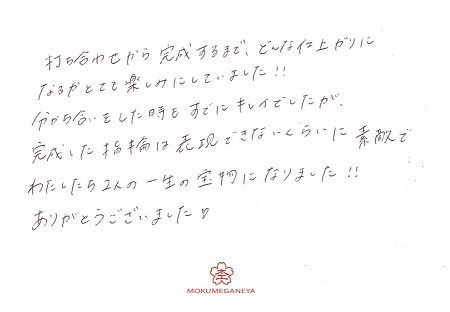 打ち合わせから完成するまで、どんな仕上がりに
なるかとても楽しみにしていました!!
分かち合いをした時もすでにキレイでしたが、
完成した指輪は表現できないくらいに素敵で
わたしたち2人の一生の宝物になりました!!
ありがとうございました♡
MOKUMEGANEYA